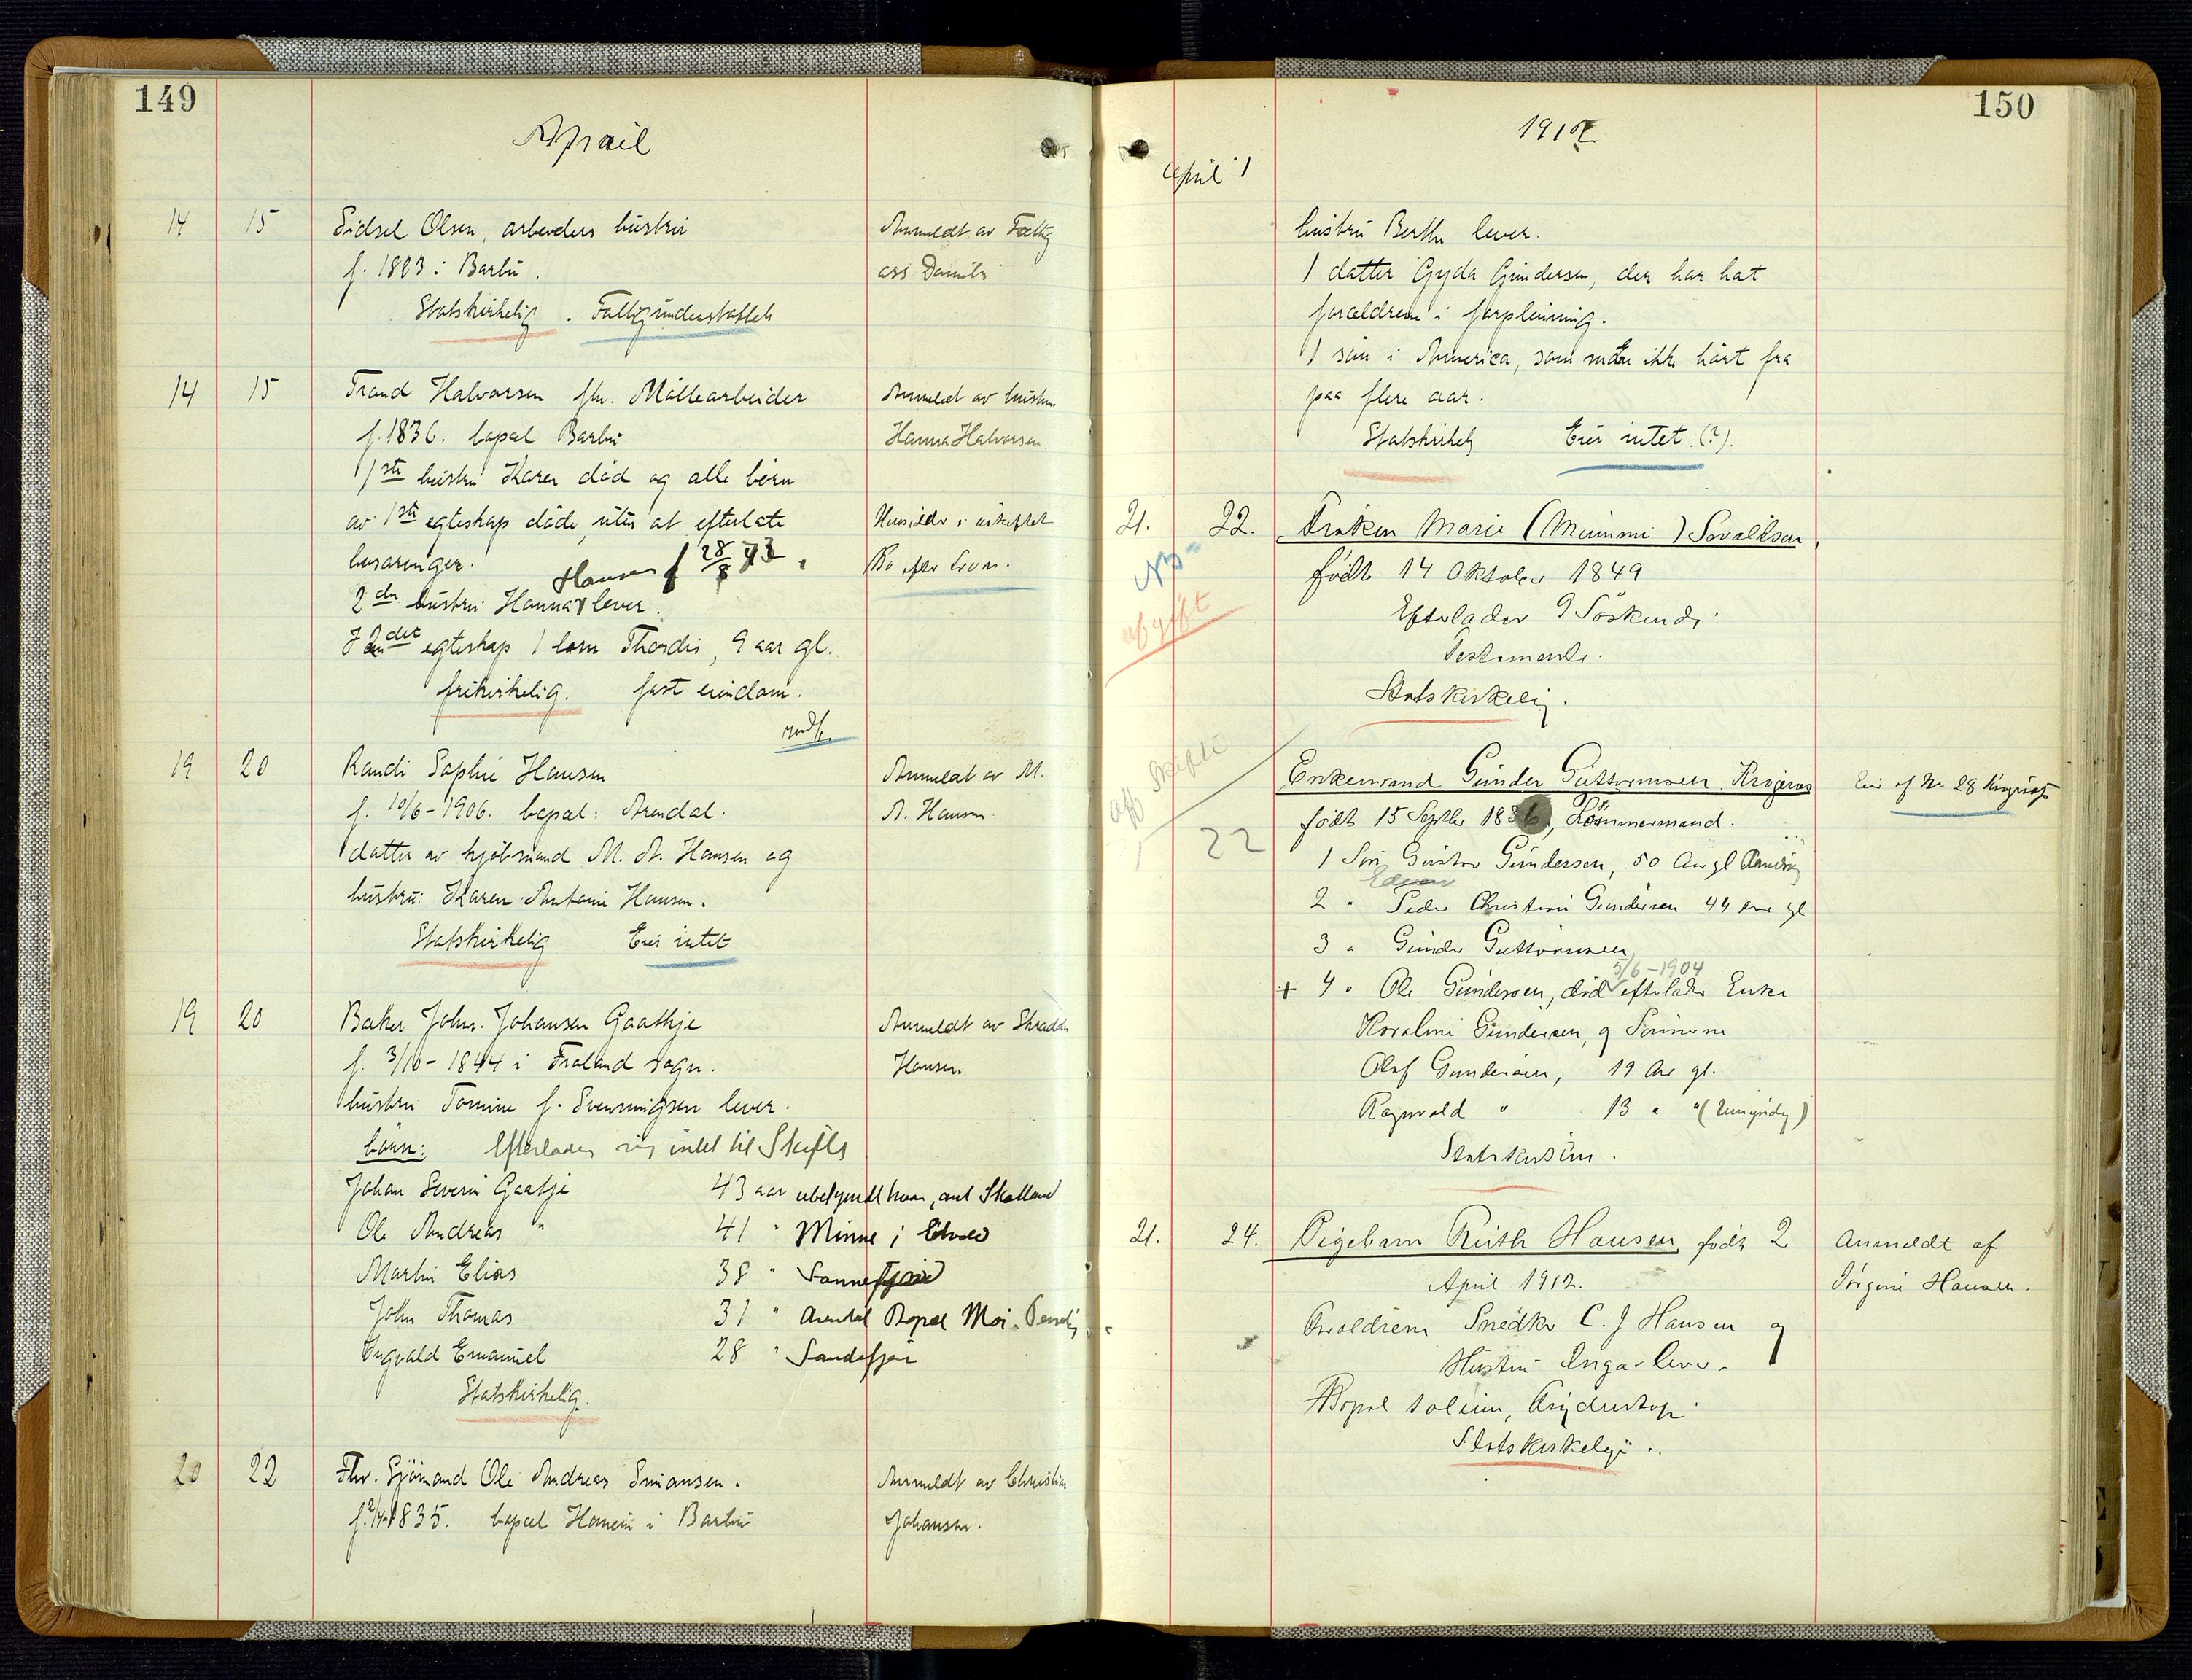 149
April
14 15 Sidsel Olsen, arbeiders hustru
f. 1823 i Barbu.
Statskirkelig. Fattigunderstøttet
Anmeldt av Fattig
ass Daniels
14 15 Trond Halvorsen fhv. Møllearbeider
f. 1836. bopæl Barbu
1ste hustru Karen død og alle børn
av 1ste egteskap døde, uten at efterlate
livsarvinger.
Hansen f 28/8 73.
2den hustru Hanna lever.
I 2det egteskap 1 barn Thordis, 9 aar gl.
frikirkelig. fast eiendom.
Anmeldt av hustru
Hanna Halvorsen
Hensidder i uskiftet
Bo efter Loven.
19 20 Randi Sophie Hansen
f. 10/6-1906. bopæl: Arendal.
datter av kjøbmand M. A. Hansen og
hustru: Karen Antonie Hansen.
Statskirkelig Eier intet
Anmeldt av M.
A. Hansen.
19 20 Baker Johs. Johansen Gaathje
f. 3/10-1844 i Froland sogn.
hustru Tomine f. Svenningsen lever.
børn: Efterlader sig intet til Skifte
Johan Severin Gaatje 43 aar ubekjendt hvor, ant Skotland
Ole Andreas " 41 " Minne i
Martin Elias 38 "
John Thomas 31 " Arendal Bopæl
Ingvald Emanuel 28 " Sandefjor
Statskirkelig.
Anmeldt av Skrædder
Hansen.
20 22 Fhv. Sjømand Ole Andreas Simonsen.
1835. bopæl i Barbu
Anmeldt av Christian
Johansen.
150
1912
April
hustru Berthe lever.
1 datter Gyda Gundersen, der har hat
forældrene i forpleining.
1 søn i America, som man ikke hørt fra
paa flere aar.
Statskirkelig Eier intet (?).
21. 22. Frøken Marie (Mimmi) Svaldsen
NB
afgift
født 14 Oktober 1849
Efterlader 9 Søskende:
Testamente.
Statskirkelig.
22 Enkemand Gunder Guttormsen
født 15 Septbr 1836, Tømmermand.
Eier af No. 28
1 Søn Gustav Gundersen, 50 Aar gl
2 " Peder Christian Gundersen 44 Aar gl
3 " Gunder Guttormsen
5/6-1904
+ 4 " Ole Gundersen, død efterlader Enke
Gundersen, og Sønnerne
Olaf Gundersen, 19 Aar gl.
Ragnvald " 13 " "
21. 24. Pigebarn Ruth Hansen født 2
April 1912.
Forældrene Snedker C. J Hansen og
Hustru Inga lever.
Bopæl
Statskirkelige.
Anmeldt af
Jørgine Hansen.